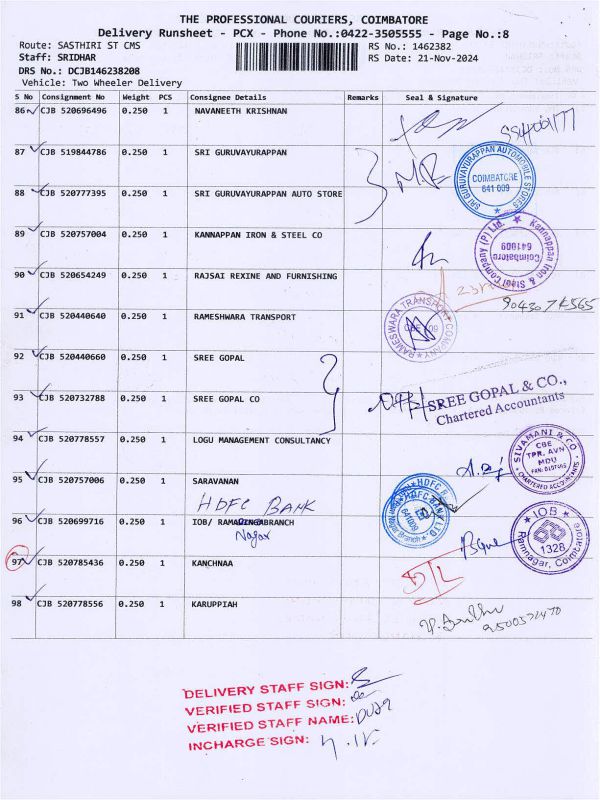 THE PROFESSIONAL COURIERS, COIMBATORE
Delivery Runsheet - PCX - Phone No.:0422-3505555 - Page No.:8
Route: SASTHIRI ST CMS RS No.: 1462382
Staff: SRIDHAR RS Date: 21-Nov-2024
DRS No.: DCJB146238208
Vehicle: Two Wheeler Delivery
S No Consignment No Weight PCS Consignee Details Remarks Seal & Signature
86 CJB 520696496 0.250 1 NAVANEETH KRISHNAN
87 CJB 519844786 0.250 1 SRI GURUVAYURAPPAN
SRI GURUVAYURAPPAN AUTOMOBILE STORES
COIMBATORE
641 009
88 CJB 520777395 0.250 1 SRI GURUVAYURAPPAN AUTO STORE
89 CJB 520757004 0.250 1 KANNAPPAN IRON & STEEL CO
Kannappan Iron & Steel Company (P) Ltd.
Coimbatore
641009
90 CJB 520654249 0.250 1 RAJSAI REXINE AND FURNISHING
91 CJB 520440640 0.250 1 RAMESHWARA TRANSPORT
RAMESWARA TRANSPORT COMPANY
92 CJB 520440660 0.250 1 SREE GOPAL
93 CJB 520732788 0.250 1 SREE GOPAL CO
SREE GOPAL & CO.,
Chartered Accountants
94 CJB 520778557 0.250 1 LOGU MANAGEMENT CONSULTANCY
SIVAMANI & CO
CBE
TPR, AVN
MDU
CHARTERED ACCOUNTANTS
95 CJB 520757006 0.250 1 SARAVANAN
HDFC BANK
HDFC BANK LTD
641009
96 CJB 520699716 0.250 1 IOB/ BRANCH
Nagar
IOB
1328
Ramnagar, Coimbatore
97 CJB 520785436 0.250 1 KANCHNAA
D/L
98 CJB 520778556 0.250 1 KARUPPIAH
DELIVERY STAFF SIGN:
VERIFIED STAFF SIGN:
VERIFIED STAFF NAME:
INCHARGE SIGN: